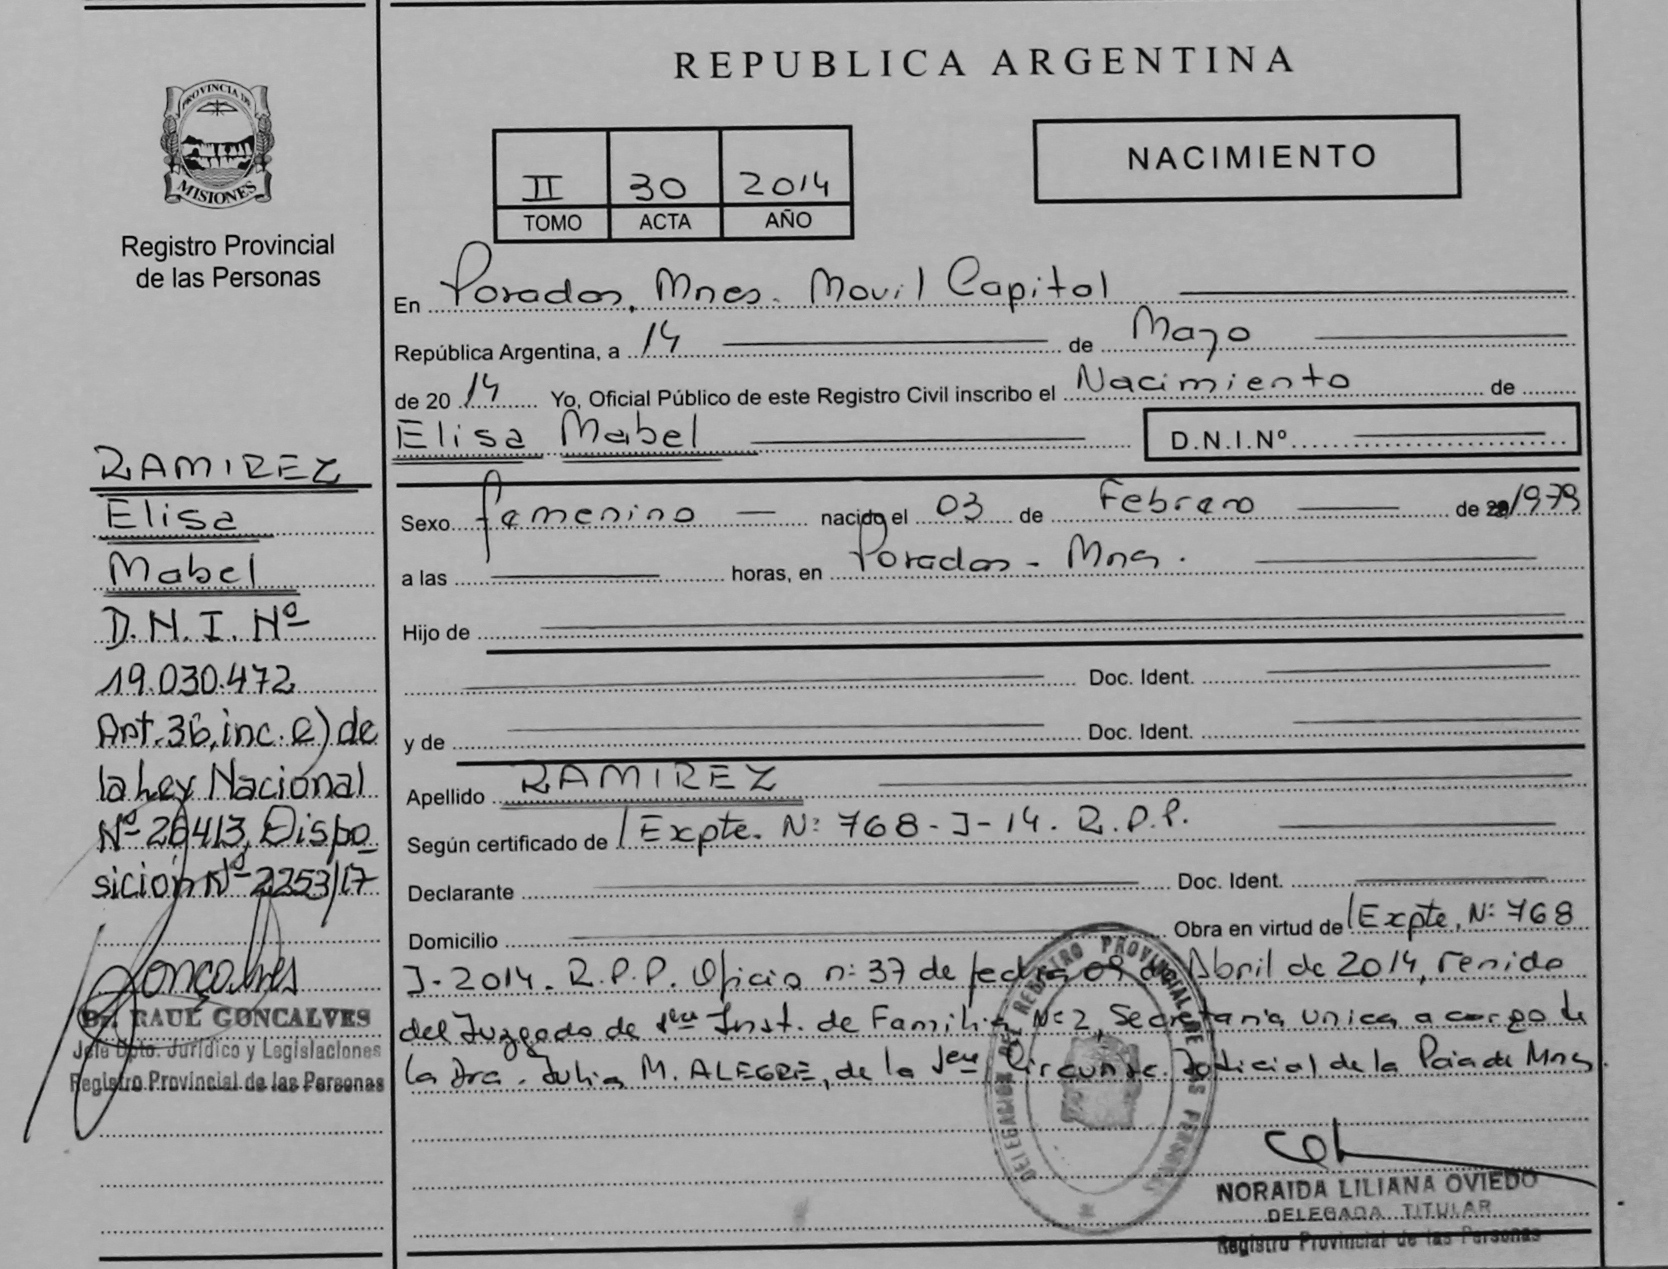 REPUBLICA ARGENTINA
PROVINCIA DE
MISIONES
Registro Provincial
de las Personas
II 30 2014
TOMO ACTA AÑO
NACIMIENTO
En Posadas, Mnes. Movil Capital
República Argentina, a 14 de Mayo
de 2014 Yo, Oficial Público de este Registro Civil inscribo el Nacimiento de
Elisa Mabel D.N.I.Nº
Sexo femenino nacido el 03 de Febrero de 1979
a las horas, en Posadas - Mnes.
Hijo de
Doc. Ident.
y de Doc. Ident.
Apellido RAMIREZ
Según certificado de Expte. Nº 768-J-14. R.P.P.
Declarante Doc. Ident.
Domicilio Obra en virtud de Expte. Nº 768
J-2014. R.P.P. Oficio nº 37 de fecha 09 de Abril de 2014, venido
del Juzgado de 1era Inst. de Familia Nº 2, Secretaria unica a cargo de
la Dra. Julia M. ALEGRE, de la 1era Circunsc. Judicial de la Pcia de Mnes.
RAMIREZ
Elisa
Mabel
D.N.I. Nº
19.030.472
Art. 36, inc. e) de
la Ley Nacional
Nº 26413, Dispo
sición Nº 2253/17
Goncalves
Dr. RAUL GONCALVES
Jefe Dpto. Jurídico y Legislaciones
Registro Provincial de las Personas
DELEGACION DEL REGISTRO PROVINCIAL DE LAS PERSONAS
NORAIDA LILIANA OVIEDO
DELEGADA TITULAR
Registro Provincial de las Personas